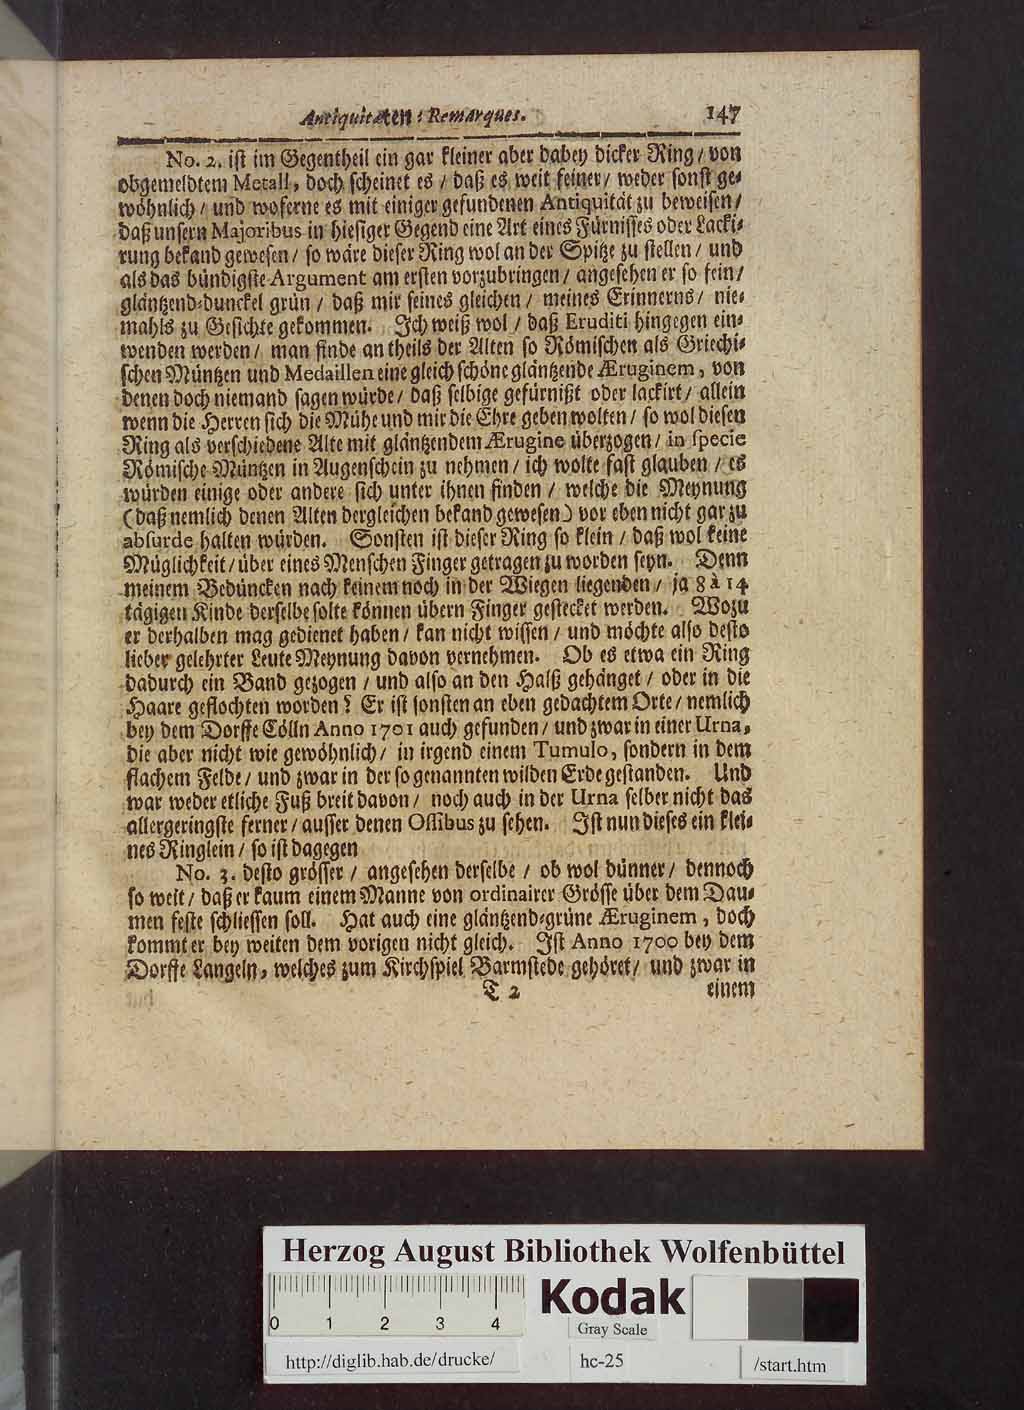 Antiquitäten: Remarques. 147
No. 2. ist im Gegentheil ein gar kleiner aber dabey dicker Ring / von
obgemeldtem Metall, doch scheinet es / daß es weit feiner / weder sonst ge-
wöhnlich / und woferne es mit einiger gefundenen Antiquität zu beweisen /
daß unsern Majoribus in hiesiger Gegend eine Art eines Fürnisses oder Lacki-
rung bekand gewesen / so wäre dieser Ring wol an der Spitze zu stellen / und
als das bündigste Argument am ersten vorzubringen / angesehen er so fein /
gläntzend-dunckel grün / daß mir seines gleichen / meines Erinnerns / nie-
mahls zu Gesichte gekommen. Ich weiß wol / daß Eruditi hingegen ein-
wenden werden / man finde an theils der Alten so Römischen als Griechi-
schen Müntzen und Medaillen eine gleich schöne gläntzende Æruginem, von
denen doch niemand sagen würde / daß selbige gefürnißt oder lackirt / allein
wenn die Herren sich die Mühe und mir die Ehre geben wolten / so wol diesen
Ring als verschiedene Alte mit gläntzendem Ærugine überzogen / in specie
Römische Müntzen in Augenschein zu nehmen / ich wolte fast glauben / es
würden einige oder andere sich unter ihnen finden / welche die Meynung
(daß nemlich denen Alten dergleichen bekand gewesen) vor eben nicht gar zu
absurde halten würden. Sonsten ist dieser Ring so klein / daß wol keine
Müglichkeit / über eines Menschen Finger getragen zu worden seyn. Denn
meinem Bedüncken nach keinem noch in der Wiegen liegenden / ja 8 à 14
tägigen Kinde derselbe solte können übern Finger gestecket werden. Wozu
er derhalben mag gedienet haben / kan nicht wissen / und möchte also desto
lieber gelehrter Leute Meynung davon vernehmen. Ob es etwa ein Ring
dadurch ein Band gezogen / und also an den Halß gehänget / oder in die
Haare geflochten worden? Er ist sonsten an eben gedachtem Orte / nemlich
bey dem Dorffe Cölln Anno 1701 auch gefunden / und zwar in einer Urna,
die aber nicht wie gewöhnlich / in irgend einem Tumulo, sondern in dem
flachem Felde / und zwar in der so genannten wilden Erde gestanden. Und
war weder etliche Fuß breit davon / noch auch in der Urna selber nicht das
allergeringste ferner / ausser denen Ossibus zu sehen. Ist nun dieses ein klei-
nes Ringlein / so ist dagegen
No. 3. desto grösser / angesehen derselbe / ob wol dünner / dennoch
so weit / daß er kaum einem Manne von ordinairer Grösse über dem Dau-
men feste schliessen soll. Hat auch eine gläntzend-grüne Æruginem, doch
kommt er bey weiten dem vorigen nicht gleich. Ist Anno 1700 bey dem
Dorffe Langeln, welches zum Kirchspiel Barmstede gehöret / und zwar in
T 2 einem
Herzog August Bibliothek Wolfenbüttel
0 1 2 3 4
Kodak
Gray Scale
http://diglib.hab.de/drucke/ hc-25 /start.htm